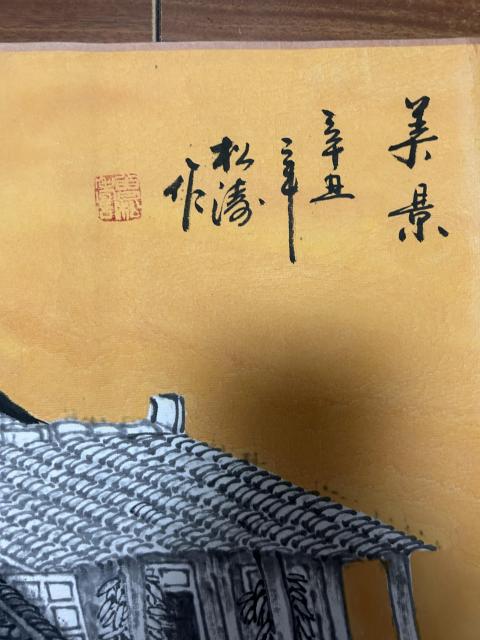 美景
辛丑
二年
松涛
作